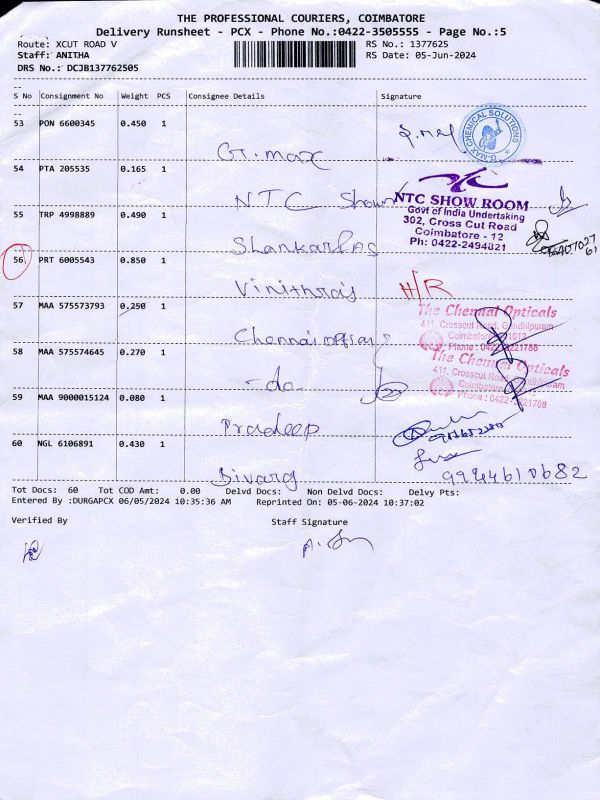 THE PROFESSIONAL COURIERS, COIMBATORE
Delivery Runsheet - PCX - Phone No.:0422-3505555 - Page No.:5
Route: XCUT ROAD V RS No.: 1377625
Staff: ANITHA RS Date: 05-Jun-2024
DRS No.: DCJB137762505
S No Consignment No Weight PCS Consignee Details Signature
53 PON 6600345 0.450 1
G.max
G-MAX CHEMICAL SOLUTIONS
54 PTA 205535 0.165 1
N.T.C Show
NTC SHOW ROOM
Govt of India Undertaking
302, Cross Cut Road
Coimbatore - 12
Ph: 0422-2494821
55 TRP 4998889 0.490 1
Shankar IAS
56 PRT 6005543 0.850 1
Vinithra's H/R
57 MAA 575573793 0.250 1
The Chennai Opticals
411, Crosscut Road, Gandhipuram
Chennai opticals
58 MAA 575574645 0.270 1
The Chennai Opticals
411, Crosscut Road, Gandhipuram
-do
59 MAA 9000015124 0.080 1
Pradeep
60 NGL 6106891 0.430 1
9944610682
Tot Docs: 60 Tot COD Amt: 0.00 Delvd Docs: Non Delvd Docs: Delvy Pts:
Entered By :DURGAPCX 06/05/2024 10:35:36 AM Reprinted On: 05-06-2024 10:37:02
Verified By Staff Signature